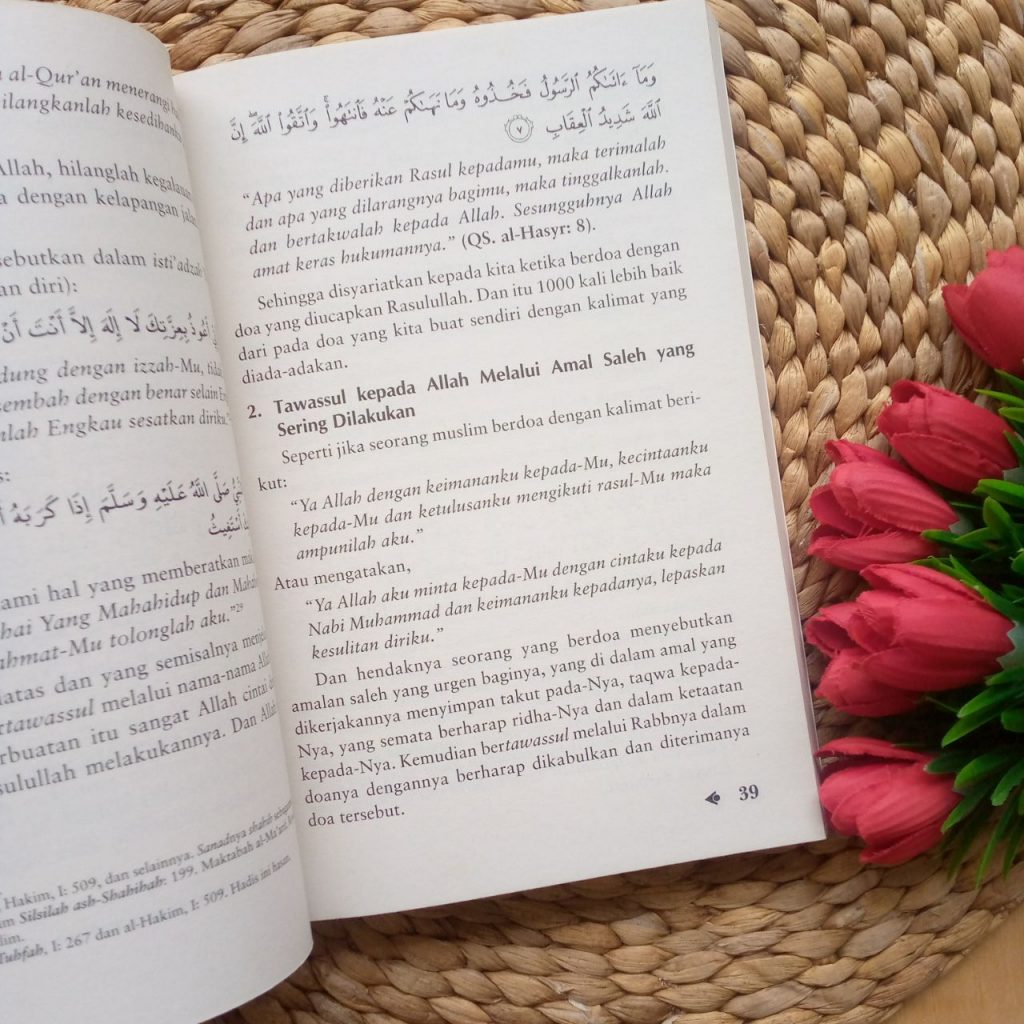 al-Qur'an menerangi
hilangkanlah kesedihanku
Allah, hilanglah kegalauan
dengan kelapangan
sebutkan dalam isti'adzah
an diri):
أَعُوذُ بِعِزَّتِكَ لَا إِلَهَ إِلاَّ أَنْتَ أَنْ
dung dengan izzah-Mu,
sembah dengan benar selain
nlah Engkau sesatkan diriku."
s:
صَلَّى اللهُ عَلَيْهِ وَسَلَّمَ إِذَا كَرَبَهُ
أَسْتَغِيثُ
ami hal yang memberatkan
hai Yang Mahahidup dan
ahmat-Mu tolonglah aku."29
diatas dan yang semisalnya
ertawassul melalui nama-nama
erbuatan itu sangat Allah cintai
sulullah melakukannya. Dan Allah
Hakim, I: 509, dan selainnya. Sanadnya shahih
Silsilah ash-Shahihah: 199. Maktabah al-Ma'arif.
lim.
Tuhfah, I: 267 dan al-Hakim, I: 509. Hadis ini hasan.
وَمَآ ءَاتَىٰكُمُ ٱلرَّسُولُ فَخُذُوهُ وَمَا نَهَىٰكُمْ عَنْهُ فَٱنتَهُوا۟ ۚ وَٱتَّقُوا۟ ٱللَّهَ ۖ إِنَّ
ٱللَّهَ شَدِيدُ ٱلْعِقَابِ ٧
"Apa yang diberikan Rasul kepadamu, maka terimalah
dan apa yang dilarangnya bagimu, maka tinggalkanlah.
dan bertakwalah kepada Allah. Sesungguhnya Allah
amat keras hukumannya." (QS. al-Hasyr: 8).
Sehingga disyariatkan kepada kita ketika berdoa dengan
doa yang diucapkan Rasulullah. Dan itu 1000 kali lebih baik
dari pada doa yang kita buat sendiri dengan kalimat yang
diada-adakan.
2. Tawassul kepada Allah Melalui Amal Saleh yang
Sering Dilakukan
Seperti jika seorang muslim berdoa dengan kalimat beri-
kut:
"Ya Allah dengan keimananku kepada-Mu, kecintaanku
kepada-Mu dan ketulusanku mengikuti rasul-Mu maka
ampunilah aku."
Atau mengatakan,
"Ya Allah aku minta kepada-Mu dengan cintaku kepada
Nabi Muhammad dan keimananku kepadanya, lepaskan
kesulitan diriku."
Dan hendaknya seorang yang berdoa menyebutkan
amalan saleh yang urgen baginya, yang di dalam amal yang
dikerjakannya menyimpan takut pada-Nya, taqwa kepada-
Nya, yang semata berharap ridha-Nya dan dalam ketaatan
kepada-Nya. Kemudian bertawassul melalui Rabbnya dalam
doanya dengannya berharap dikabulkan dan diterimanya
doa tersebut.
39